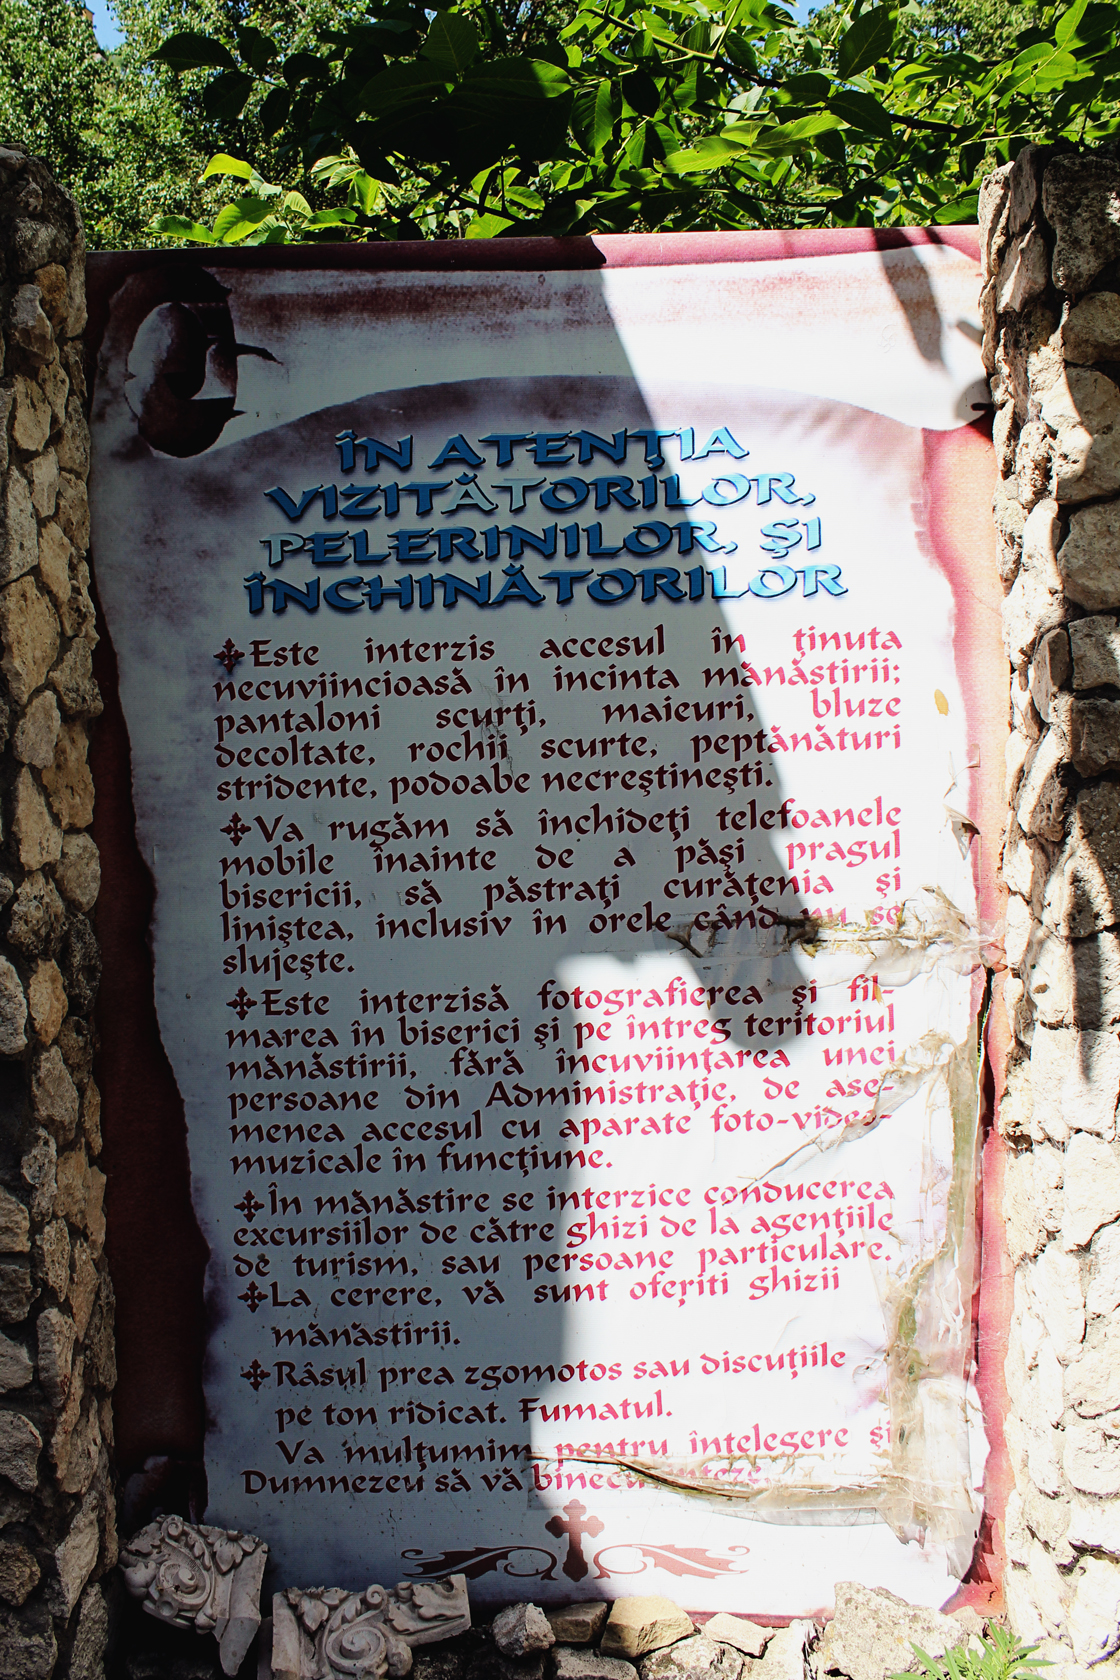 ÎN ATENŢIA
VIZITĂTORILOR,
PELERINILOR, ŞI
ÎNCHINĂTORILOR
Este interzis accesul în ţinuta
necuviincioasă în incinta mănăstirii;
pantaloni scurţi, maieuri, bluze
decoltate, rochii scurte, peptănături
stridente, podoabe necreştineşti.
Va rugăm să închideţi telefoanele
mobile înainte de a păşi pragul
bisericii, să păstraţi curăţenia şi
liniştea, inclusiv în orele când nu se
slujeşte.
Este interzisă fotografierea şi fil-
marea în biserici şi pe întreg teritoriul
mănăstirii, fără încuviinţarea unei
persoane din Administraţie, de ase-
menea accesul cu aparate foto-video-
muzicale în funcţiune.
În mănăstire se interzice conducerea
excursiilor de către ghizi de la agenţiile
de turism, sau persoane particulare.
La cerere, vă sunt oferiti ghizii
mănăstirii.
Râsul prea zgomotos sau discuţiile
pe ton ridicat. Fumatul.
Va mulţumim pentru înţelegere şi
Dumnezeu să vă